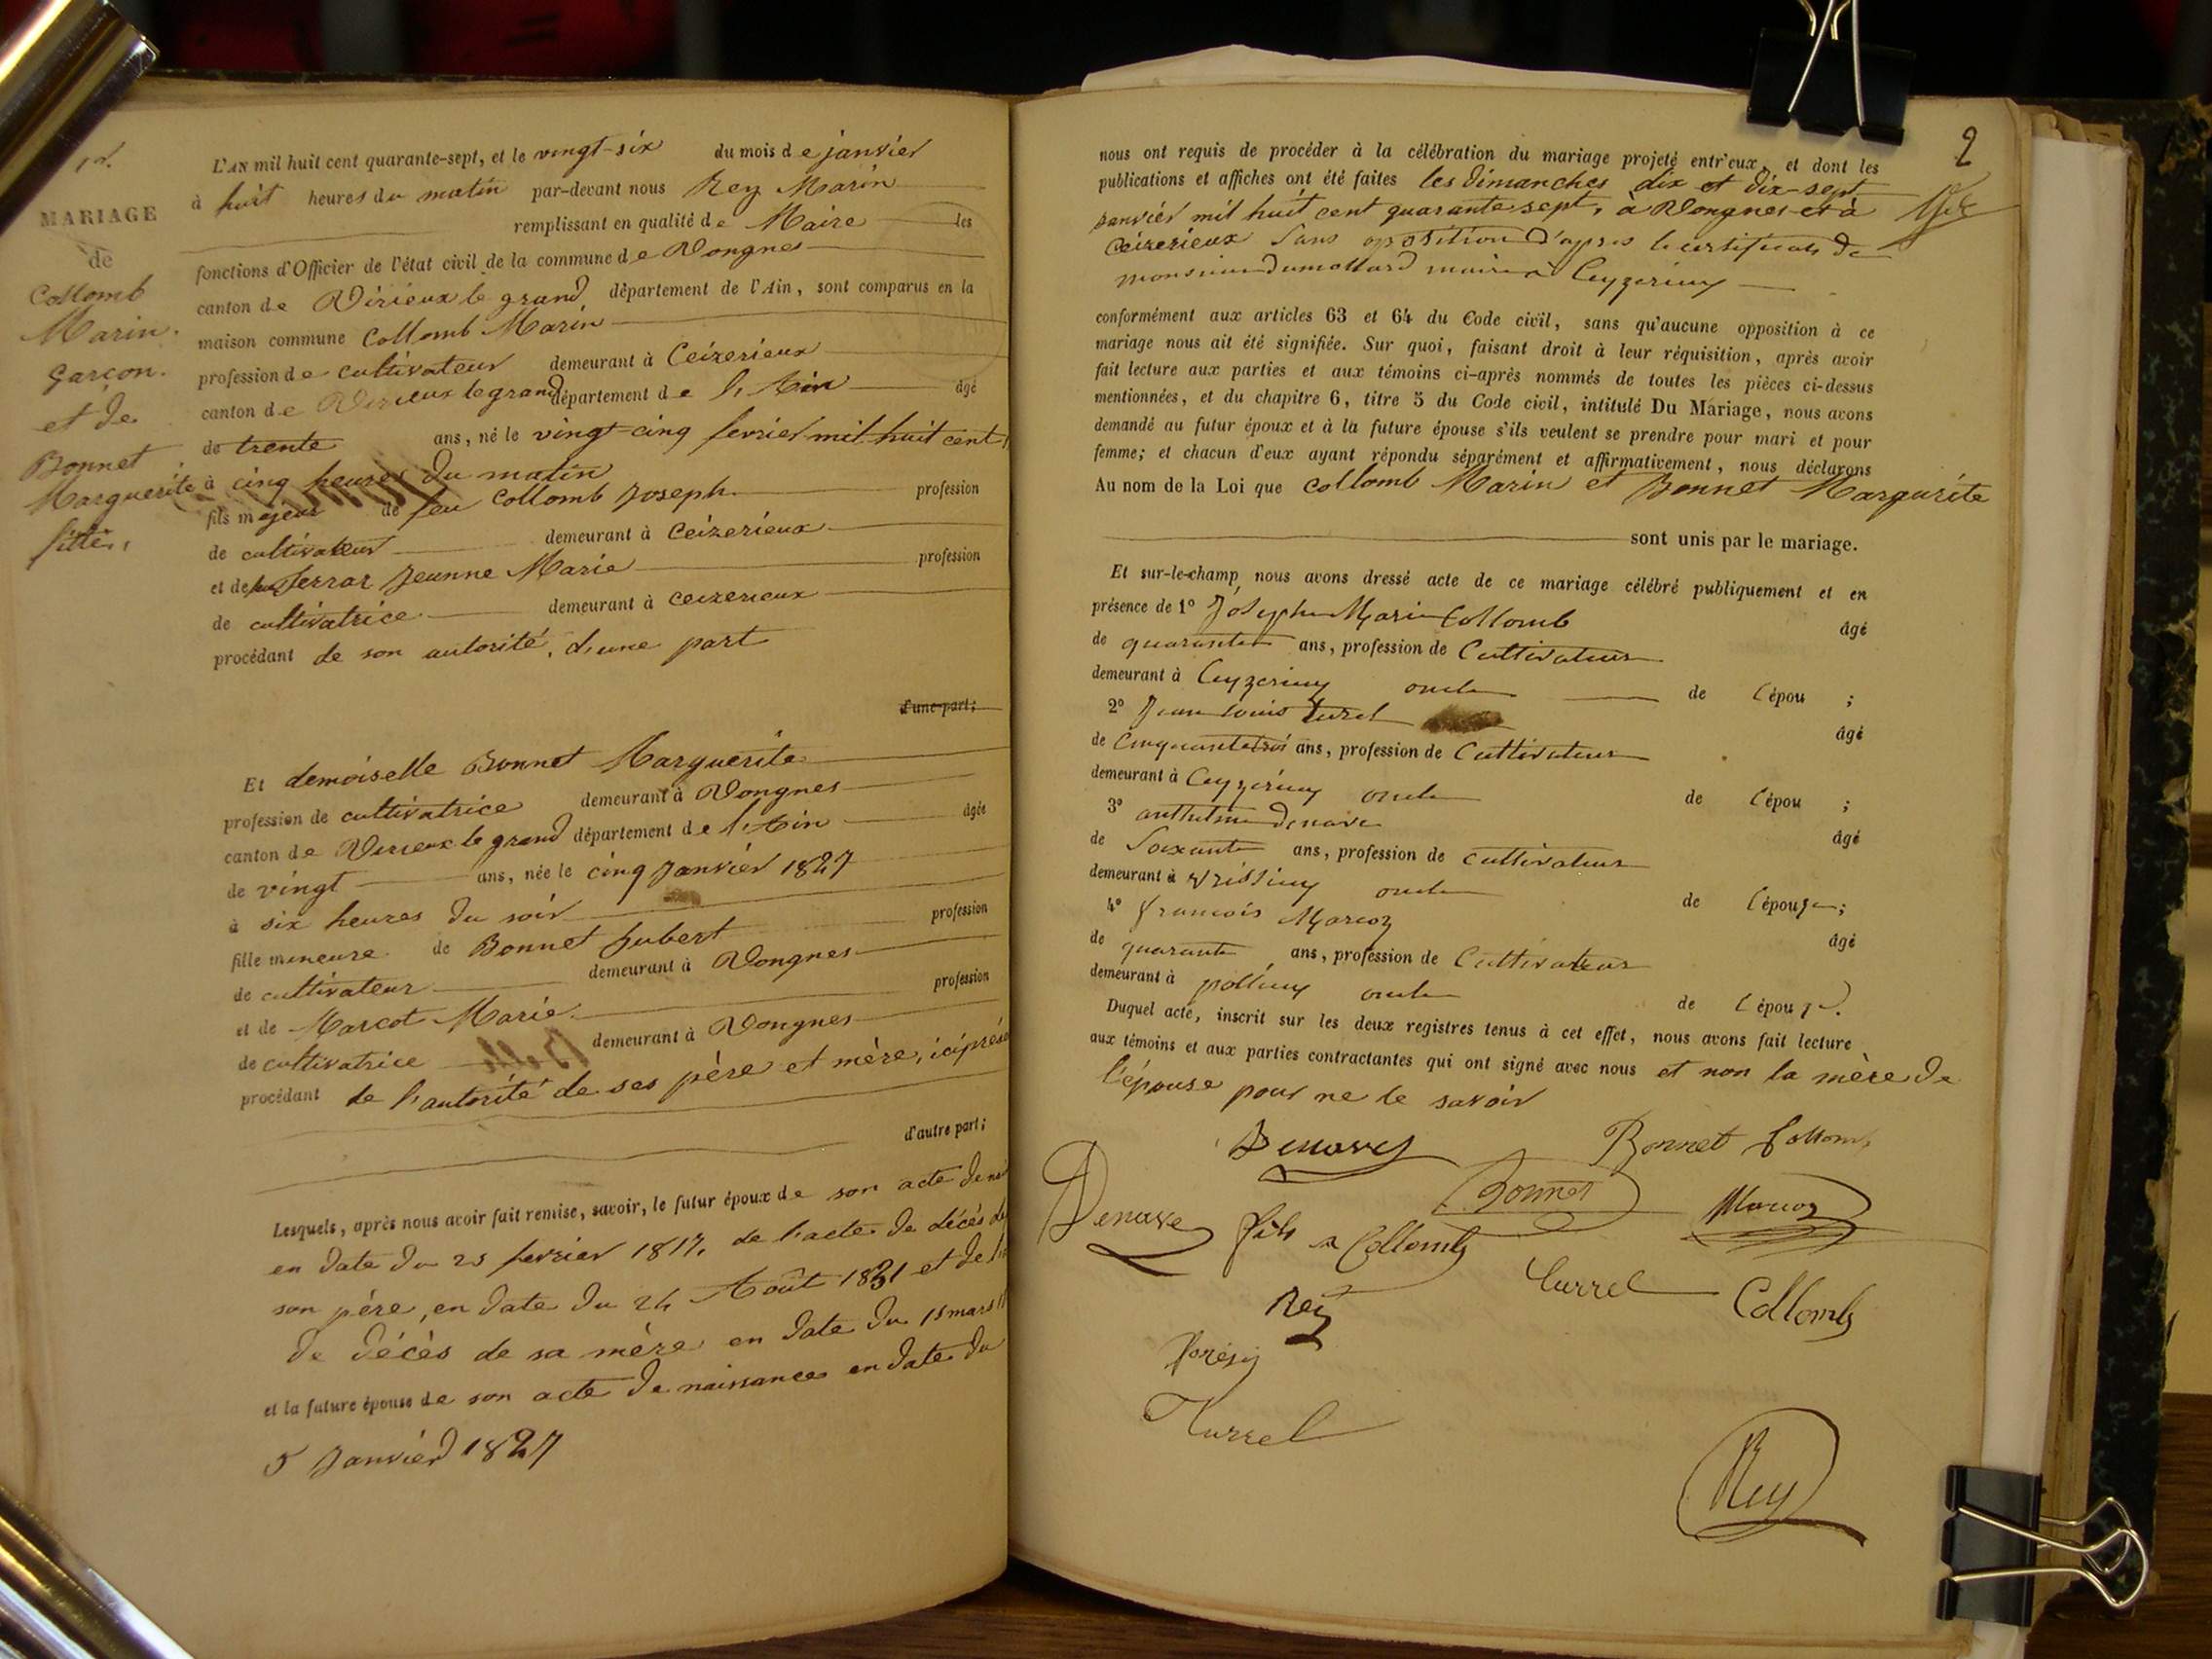 1er.
MARIAGE
de
Collomb
Marin.
garçon.
et de
Bonnet
Marguerite
fille,
L'AN mil huit cent quarante-sept, et le vingt-six du mois de janvier
à huit heures du matin par-devant nous Rey Marin
remplissant en qualité de Maire les
fonctions d'Officier de l'état civil de la commune de Vongnes
canton de Virieux le grand, département de l'Ain, sont comparus en la
maison commune Collomb Marin
profession de cultivateur demeurant à Ceizerieux
canton de Virieux le grand département de l'Ain âgé
de trente ans, né le vingt-cinq fevrier mil huit cent
à cinq heures du matin
fils majeur de feu Collomb Joseph profession
de cultivateur demeurant à Ceizerieux
et de feu ferrar Jeanne Marie profession
de cultivatrice demeurant à ceizerieux
procédant de son autorité, d'une part
d'une part;
Et demoiselle Bonnet Marguerite
profession de cultivatrice demeurant à Vongnes
canton de Virieux le grand département de l'Ain âgée
de vingt ans, née le cinq Janvier 1827
à six heures du soir
fille mineure de Bonnet hubert profession
de cultivateur demeurant à Vongnes
et de Marcot Marie profession
de cultivatrice demeurant à Vongnes
procédant de l'autorité de ses père et mère, ici
d'autre part;
Lesquels, après nous avoir fait remise, savoir, le futur époux de son acte de
en date du 25 fevrier 1817, de l'acte de décès de
son père, en date du 24 Août 1831 et de
de décès de sa mère en date du 15 mars
et la future épouse de son acte de naissance en date du
5 Janvier 1827
2
nous ont requis de procéder à la célébration du mariage projeté entr'eux, et dont les
publications et affiches ont été faites les dimanches dix et dix-sept
janvier mil huit cent quarante sept, à Vongnes et à
Ceizerieux sans opposition d'apres le certificat de
monsieur Dumollard maire à Ceyzerieux
conformément aux articles 63 et 64 du Code civil, sans qu'aucune opposition à ce
mariage nous ait été signifiée. Sur quoi, faisant droit à leur réquisition, après avoir
fait lecture aux parties et aux témoins ci-après nommés de toutes les pièces ci-dessus
mentionnées, et du chapitre 6, titre 5 du Code civil, intitulé Du Mariage, nous avons
demandé au futur époux et à la future épouse s'ils veulent se prendre pour mari et pour
femme; et chacun d'eux ayant répondu séparément et affirmativement, nous déclarons
Au nom de la Loi que Collomb Marin et Bonnet Margurite
sont unis par le mariage.
Et sur-le-champ, nous avons dressé acte de ce mariage célébré publiquement et en
présence de 1° Joseph Marin Collomb âgé
de quarante ans, profession de Cultivateur
demeurant à Ceyzerieu oncle de l'épou ;
2° Jean Louis turel âgé
de Cinquante trois ans, profession de Cultivateur
demeurant à Ceyzerieu oncle de l'épou ;
3° anthelme Denave âgé
de Soixante ans, profession de Cultivateur
demeurant à oncle de l'épouse;
4° françois Marcoz âgé
de quarante ans, profession de Cultivateur
demeurant à pollieu oncle de l'épouse.
Duquel acte, inscrit sur les deux registres tenus à cet effet, nous avons fait lecture
aux témoins et aux parties contractantes qui ont signé avec nous et non la mère de
l'épouse pour ne le savoir
Denave Bonnet Collomb
Denave fils Collomb Bonnet Marcoz
Rey Turrel Collomb
Turrel
Rey